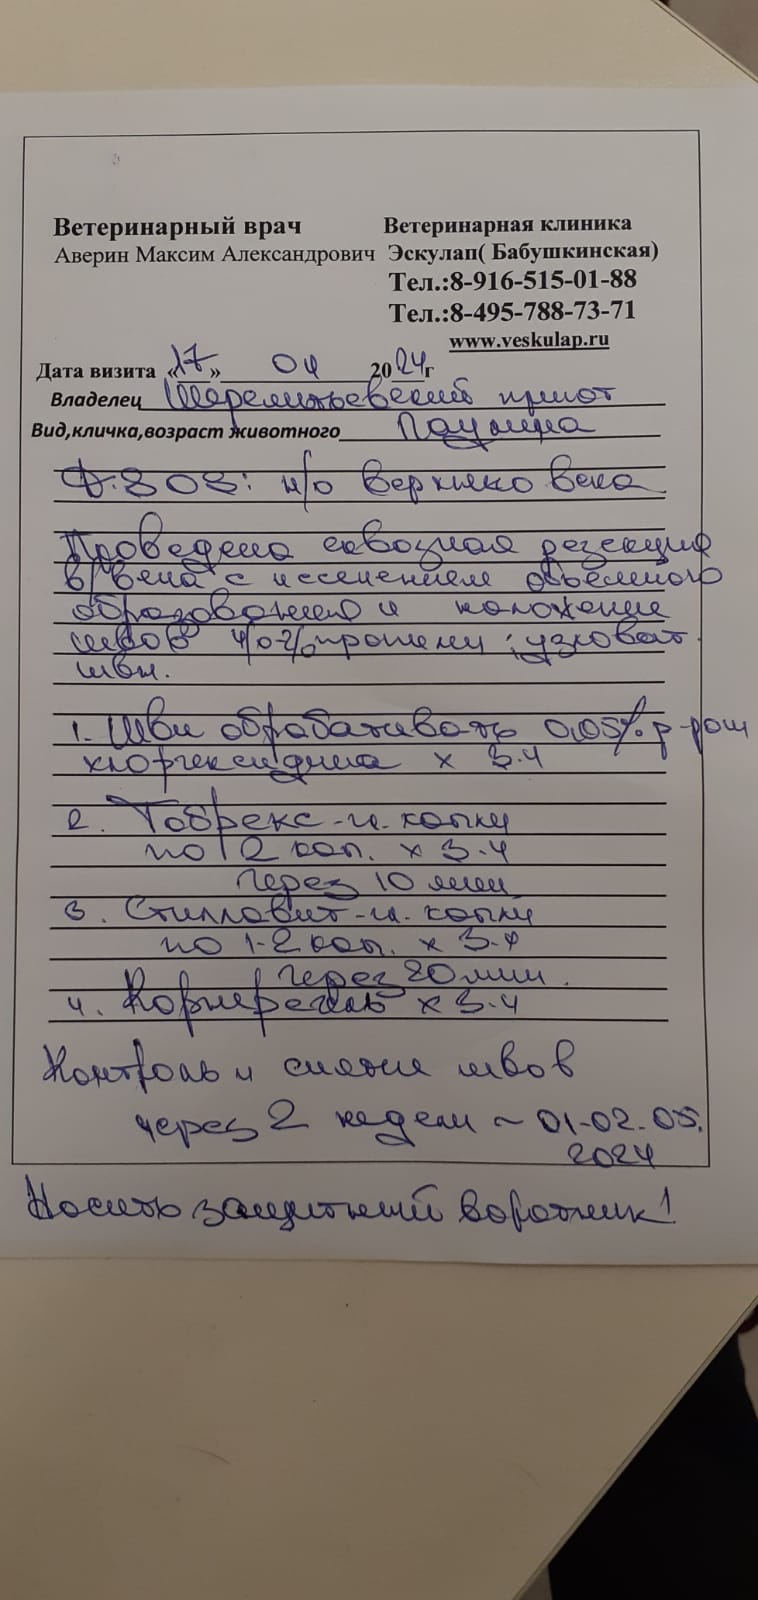 Ветеринарный врач Ветеринарная клиника
Аверин Максим Александрович Эскулап( Бабушкинская)
Тел.:8-916-515-01-88
Тел.:8-495-788-73-71
www.veskulap.ru
Дата визита «17» 04 2024г
Владелец Шереметьевский приют
Вид,кличка,возраст животного Паулина
: н/о верхнего века
Проведена сквозная резекция
в/века с иссечением объемного
образования и наложение
швов узловат.
швы.
1. Швы обрабатывать 0,05% р-ром
хлоргексидина х 3.ч
2. Тобрекс-гл. капли
по 2 кап. х 3.ч
через 10 мин
3. Стиллавит-гл. капли
по 1-2 кап. х 3.ч
через 20 мин.
4. Корнерегель х 3.ч
Контроль и снятие швов
через 2 недели ~ 01-02.05.
2024
Носить защитный воротник!